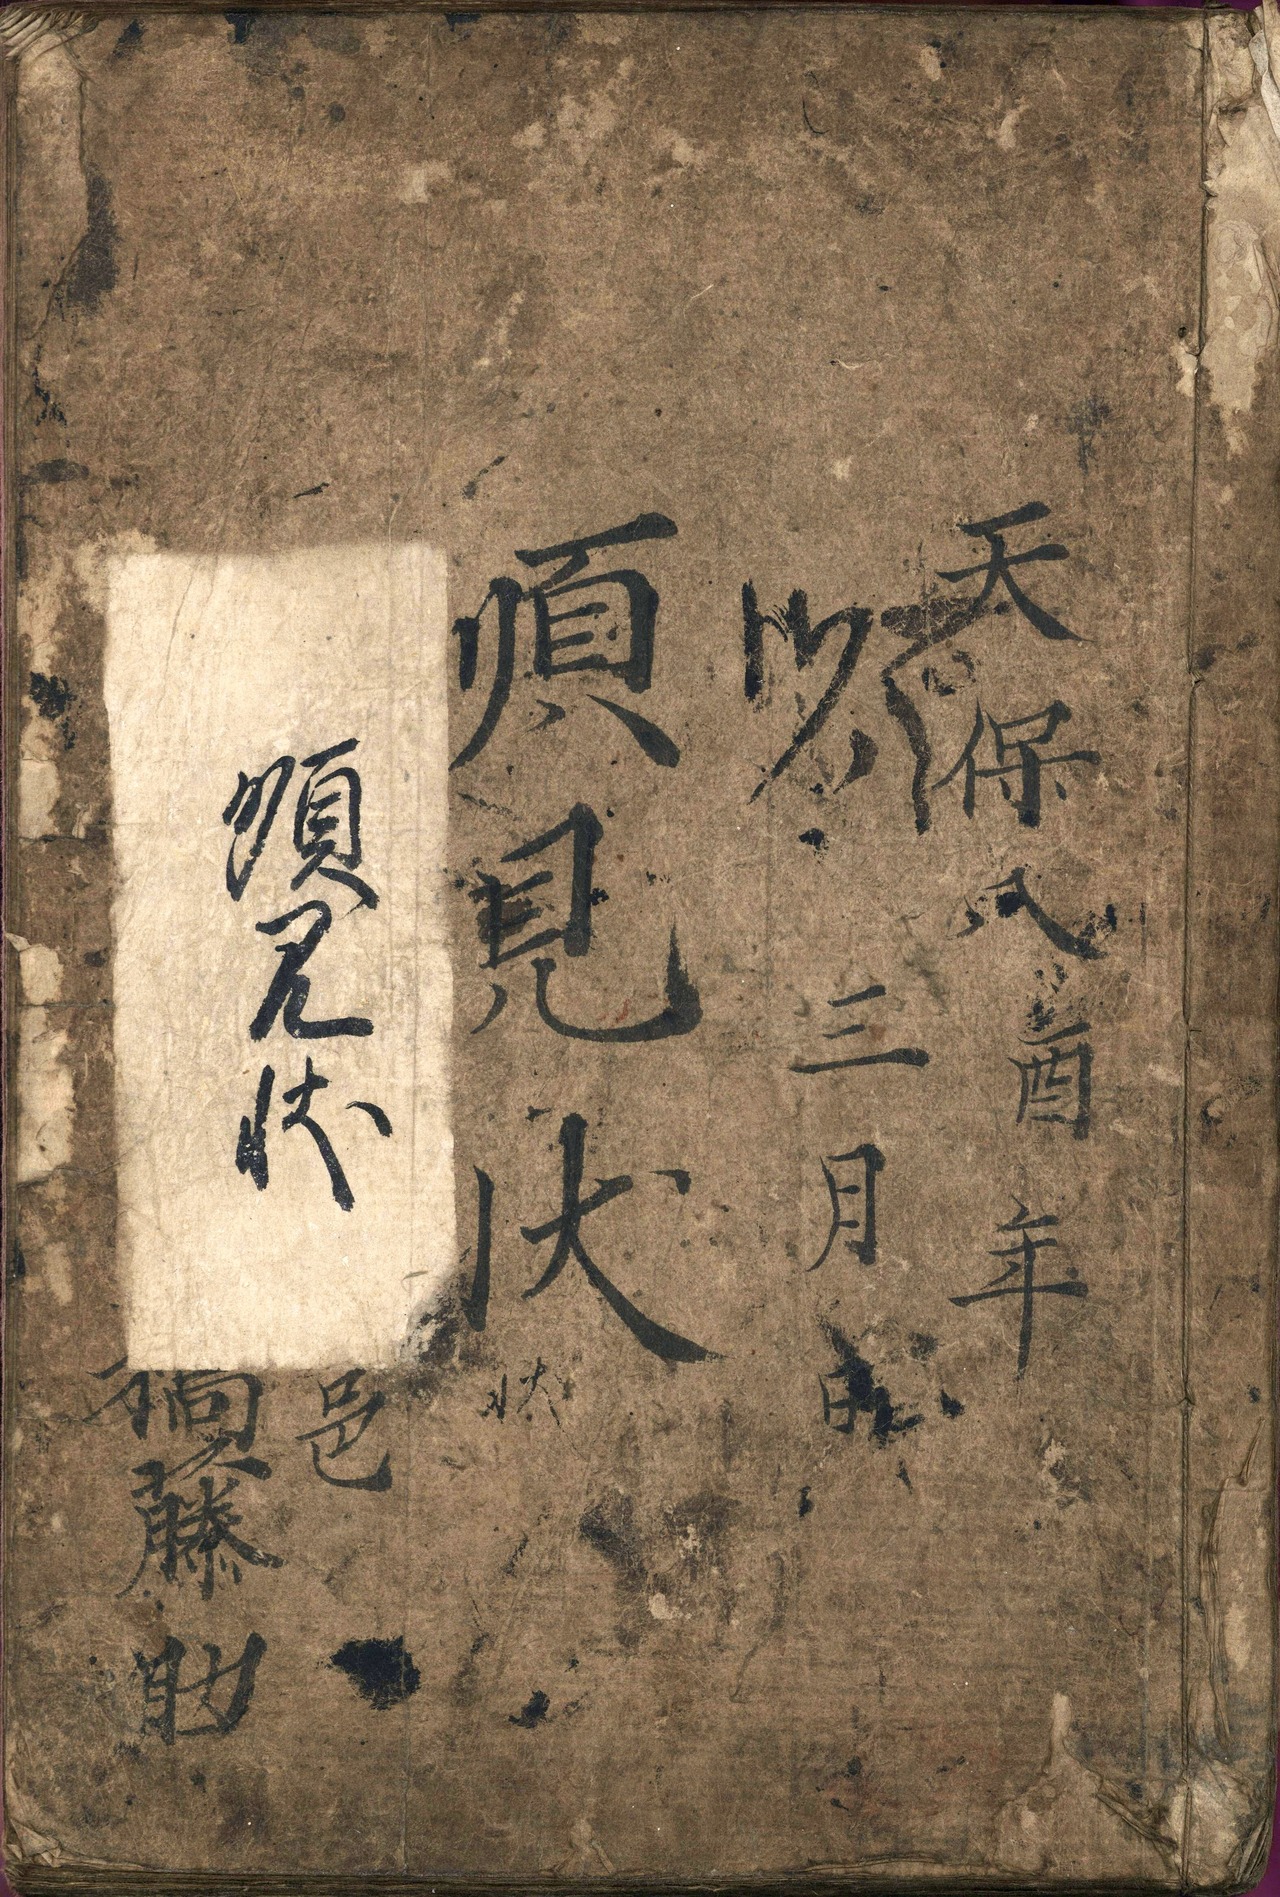 天保八酉年
三月
順見状
状
邑
藤助
順見状